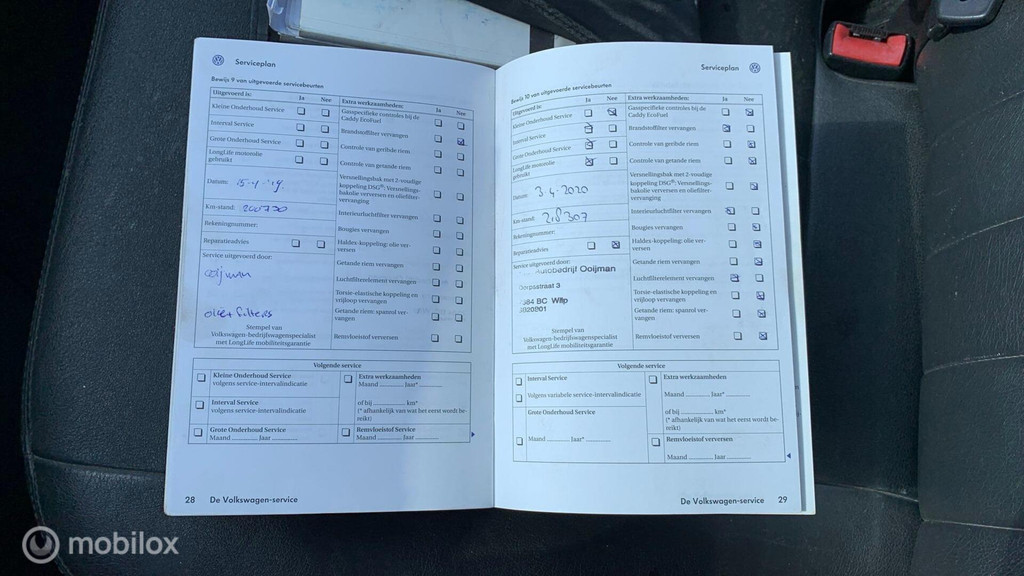 Serviceplan
Bewijs 9 van uitgevoerde servicebeurten
Uitgevoerd is: Ja Nee Extra werkzaamheden: Ja Nee
Kleine Onderhoud Service
Interval Service
Grote Onderhoud Service
LongLife motorolie
gebruikt
Datum:
Km-stand: 200730
Rekeningnummer:
Reparatieadvies
Service uitgevoerd door:
ooijman
olie + filters
Stempel van
Volkswagen-bedrijfswagenspecialist
met LongLife mobiliteitsgarantie
Gasspecifieke controles bij de
Caddy EcoFuel
Brandstoffilter vervangen
Controle van geribde riem
Controle van getande riem
Versnellingsbak met 2-voudige
koppeling DSG®: Versnellings-
bakolie verversen en oliefilter-
vervanging
Interieurluchtfilter vervangen
Bougies vervangen
Haldex-koppeling: olie ver-
versen
Getande riem vervangen
Luchtfilterelement vervangen
Torsie-elastische koppeling en
vrijloop vervangen
Getande riem: spanrol ver-
vangen
Remvloeistof verversen
Volgende service
Kleine Onderhoud Service
volgens service-intervalindicatie
Interval Service
volgens service-intervalindicatie
Grote Onderhoud Service
Maand ............ Jaar ............
Extra werkzaamheden
Maand ............ Jaar* ............
of bij ................ km*
(* afhankelijk van wat het eerst wordt be-
reikt)
Remvloeistof Service
Maand ............ Jaar ............
28 De Volkswagen-service
Serviceplan
Bewijs 10 van uitgevoerde servicebeurten
Uitgevoerd is: Ja Nee Extra werkzaamheden: Ja Nee
Kleine Onderhoud Service
Interval Service
Grote Onderhoud Service
LongLife motorolie
gebruikt
Datum: 3-4-2020
Km-stand: 218307
Rekeningnummer:
Reparatieadvies
Service uitgevoerd door:
Autobedrijf Ooijman
Dorpsstraat 3
BC Wilp
Stempel van
Volkswagen-bedrijfswagenspecialist
met LongLife mobiliteitsgarantie
Gasspecifieke controles bij de
Caddy EcoFuel
Brandstoffilter vervangen
Controle van geribde riem
Controle van getande riem
Versnellingsbak met 2-voudige
koppeling DSG®: Versnellings-
bakolie verversen en oliefilter-
vervanging
Interieurluchtfilter vervangen
Bougies vervangen
Haldex-koppeling: olie ver-
versen
Getande riem vervangen
Luchtfilterelement vervangen
Torsie-elastische koppeling en
vrijloop vervangen
Getande riem: spanrol ver-
vangen
Remvloeistof verversen
Volgende service
Interval Service
Volgens variabele service-intervalindicatie
Grote Onderhoud Service
Maand ............ Jaar* ............
Extra werkzaamheden
Maand ............ Jaar* ............
of bij ................ km*
(* afhankelijk van wat het eerst wordt be-
reikt)
Remvloeistof verversen
Maand ............ Jaar ............
De Volkswagen-service 29
mobilox